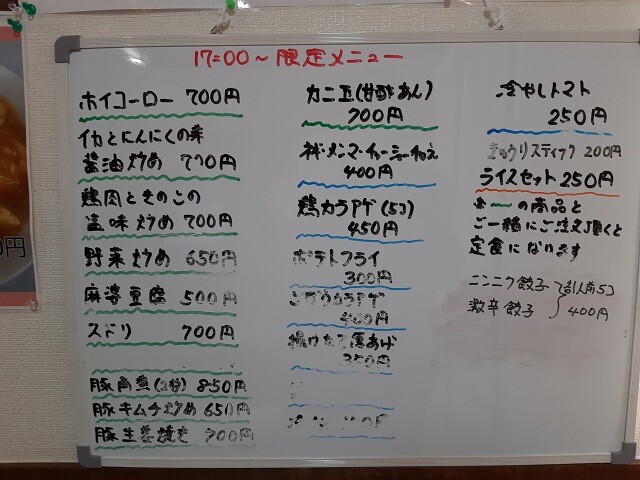 17:00～限定メニュー
ホイコーロー 700円
イカとにんにくの芽
醤油炒め 700円
鶏肉ときのこの
塩味炒め 700円
野菜炒め 650円
麻婆豆腐 500円
スドリ 700円
豚角煮 850円
豚キムチ炒め 650円
豚生姜焼き 700円
カニ玉(甘酢あん)
700円
ネギ・メンマ・チャーシュー
400円
鶏カラアゲ(5コ)
450円
ポテトフライ
300円
カラアゲ
400円
揚げ 厚あげ
350円
冷やしトマト
250円
きゅうりスティック 200円
ライスセット 250円
※ の商品と
ご一緒にご注文頂くと
定食になります
ニンニク餃子
激辛餃子
1人前5コ
400円
円